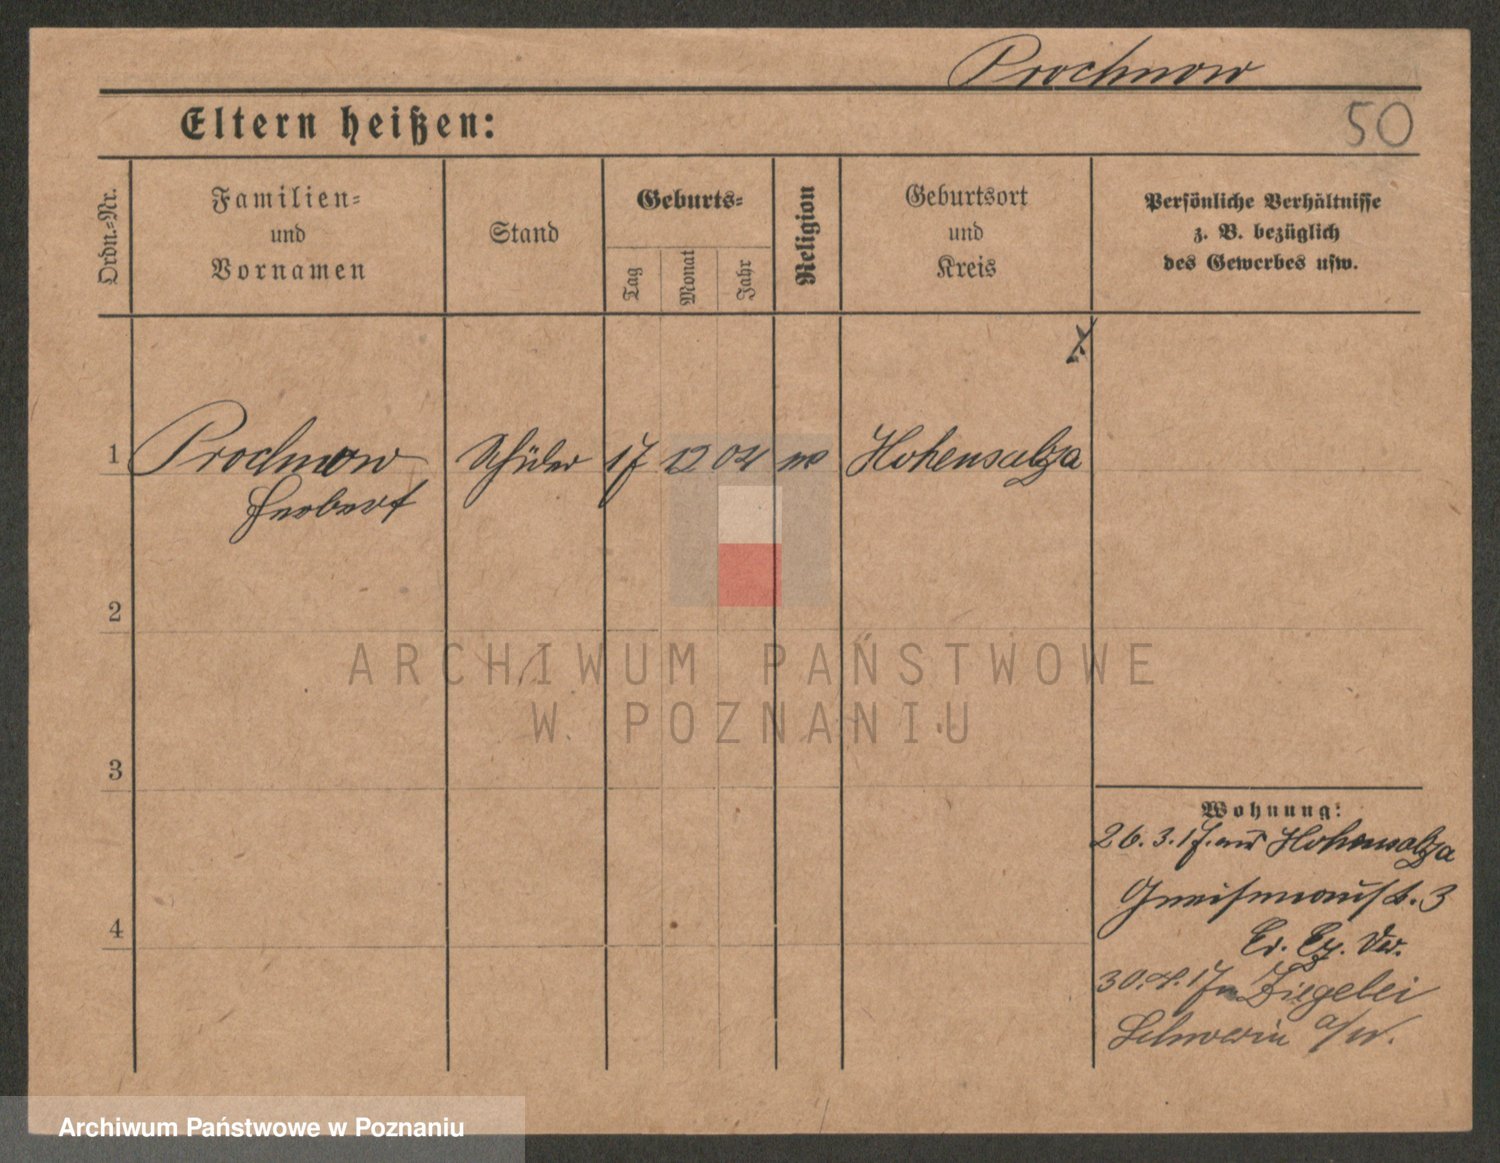 Prochnow
50
Eltern heißen:
Ordn.-Nr.
Familien-
und
Vornamen
Stand
Geburts-
Tag
Monat
Jahr
Religion
Geburtsort
und
Kreis
Persönliche Verhältnisse
z. B. bezüglich
des Gewerbes usw.
1 Prochnow Schüler 17 12 04 Hohensalza
Herbert
2
3
4
Wohnung:
26.3.17. aus Hohensalza
Gneisenaustr. 3
30.4.17 Ziegelei
Schwerin a/W.
ARCHIWUM PAŃSTWOWE
W POZNANIU
Archiwum Państwowe w Poznaniu